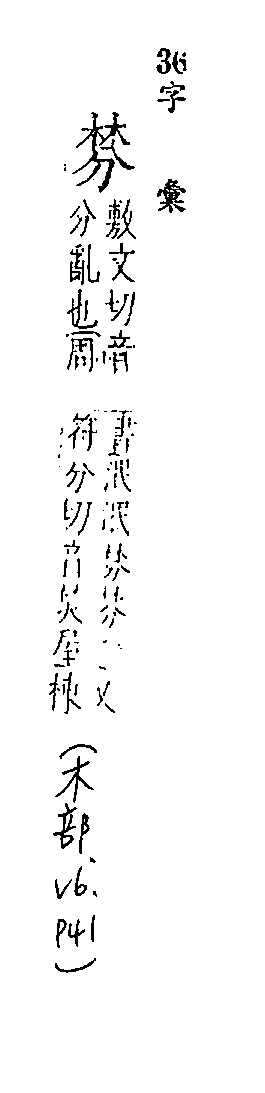 36字彙
棼
敷文切音
分亂也周
書泯泯棼棼又
符分切音焚屋棟
(木部、v6.p41)